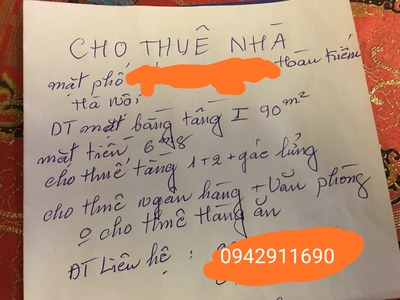 CHO THUÊ NHÀ
mặt phố Hoàn Kiếm
Hà Nội
DT mặt bằng tầng I 90m²
mặt tiền 6m8
cho thuế tầng 1+2+gác lửng
cho thuê ngân hàng + Văn phòng
o cho thuê Hàng ăn
ĐT Liên hệ :
0942911690